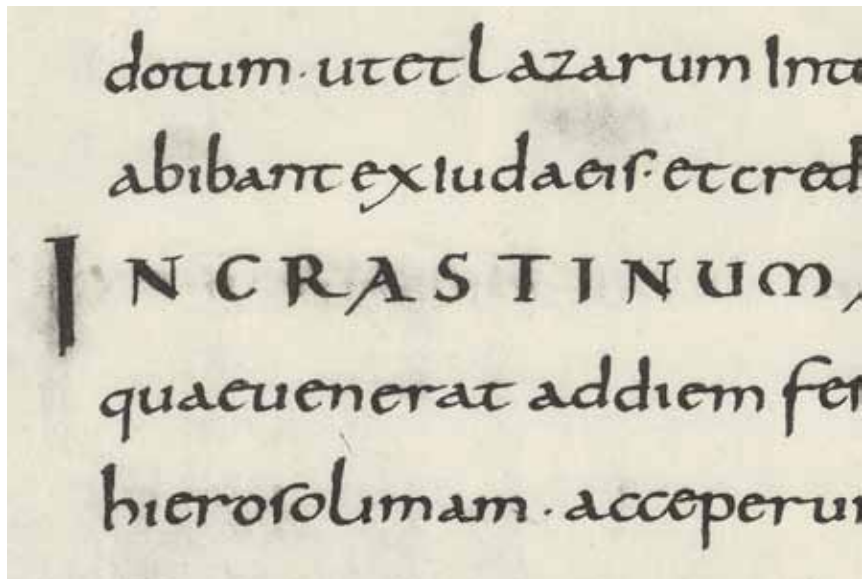 dotum · ut et Lazarum Inte
abibant ex Iudaeis · et cred
IN CRASTINUM
quae uenerat ad diem fes
hierosolimam · acceperun